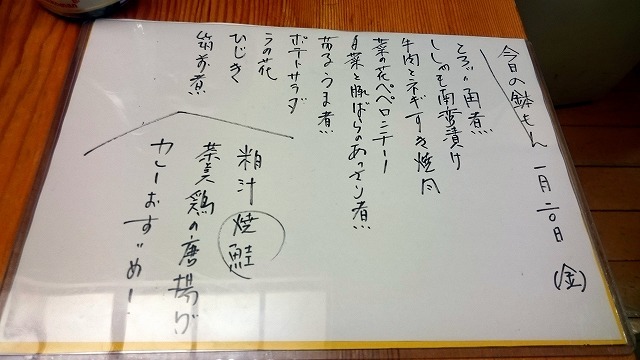 今日の鉢もん 一月二〇日 (金)
とろぶた角煮
ししゃも南蛮漬け
牛肉とネギすき焼風
菜の花ペペロンチーノ
白菜と豚ばらのあっさり煮
菊芋うま煮
ポテトサラダ
うの花
ひじき
筑前煮
粕汁 焼鮭
菜美鶏の唐揚げ
カレーおすすめ!